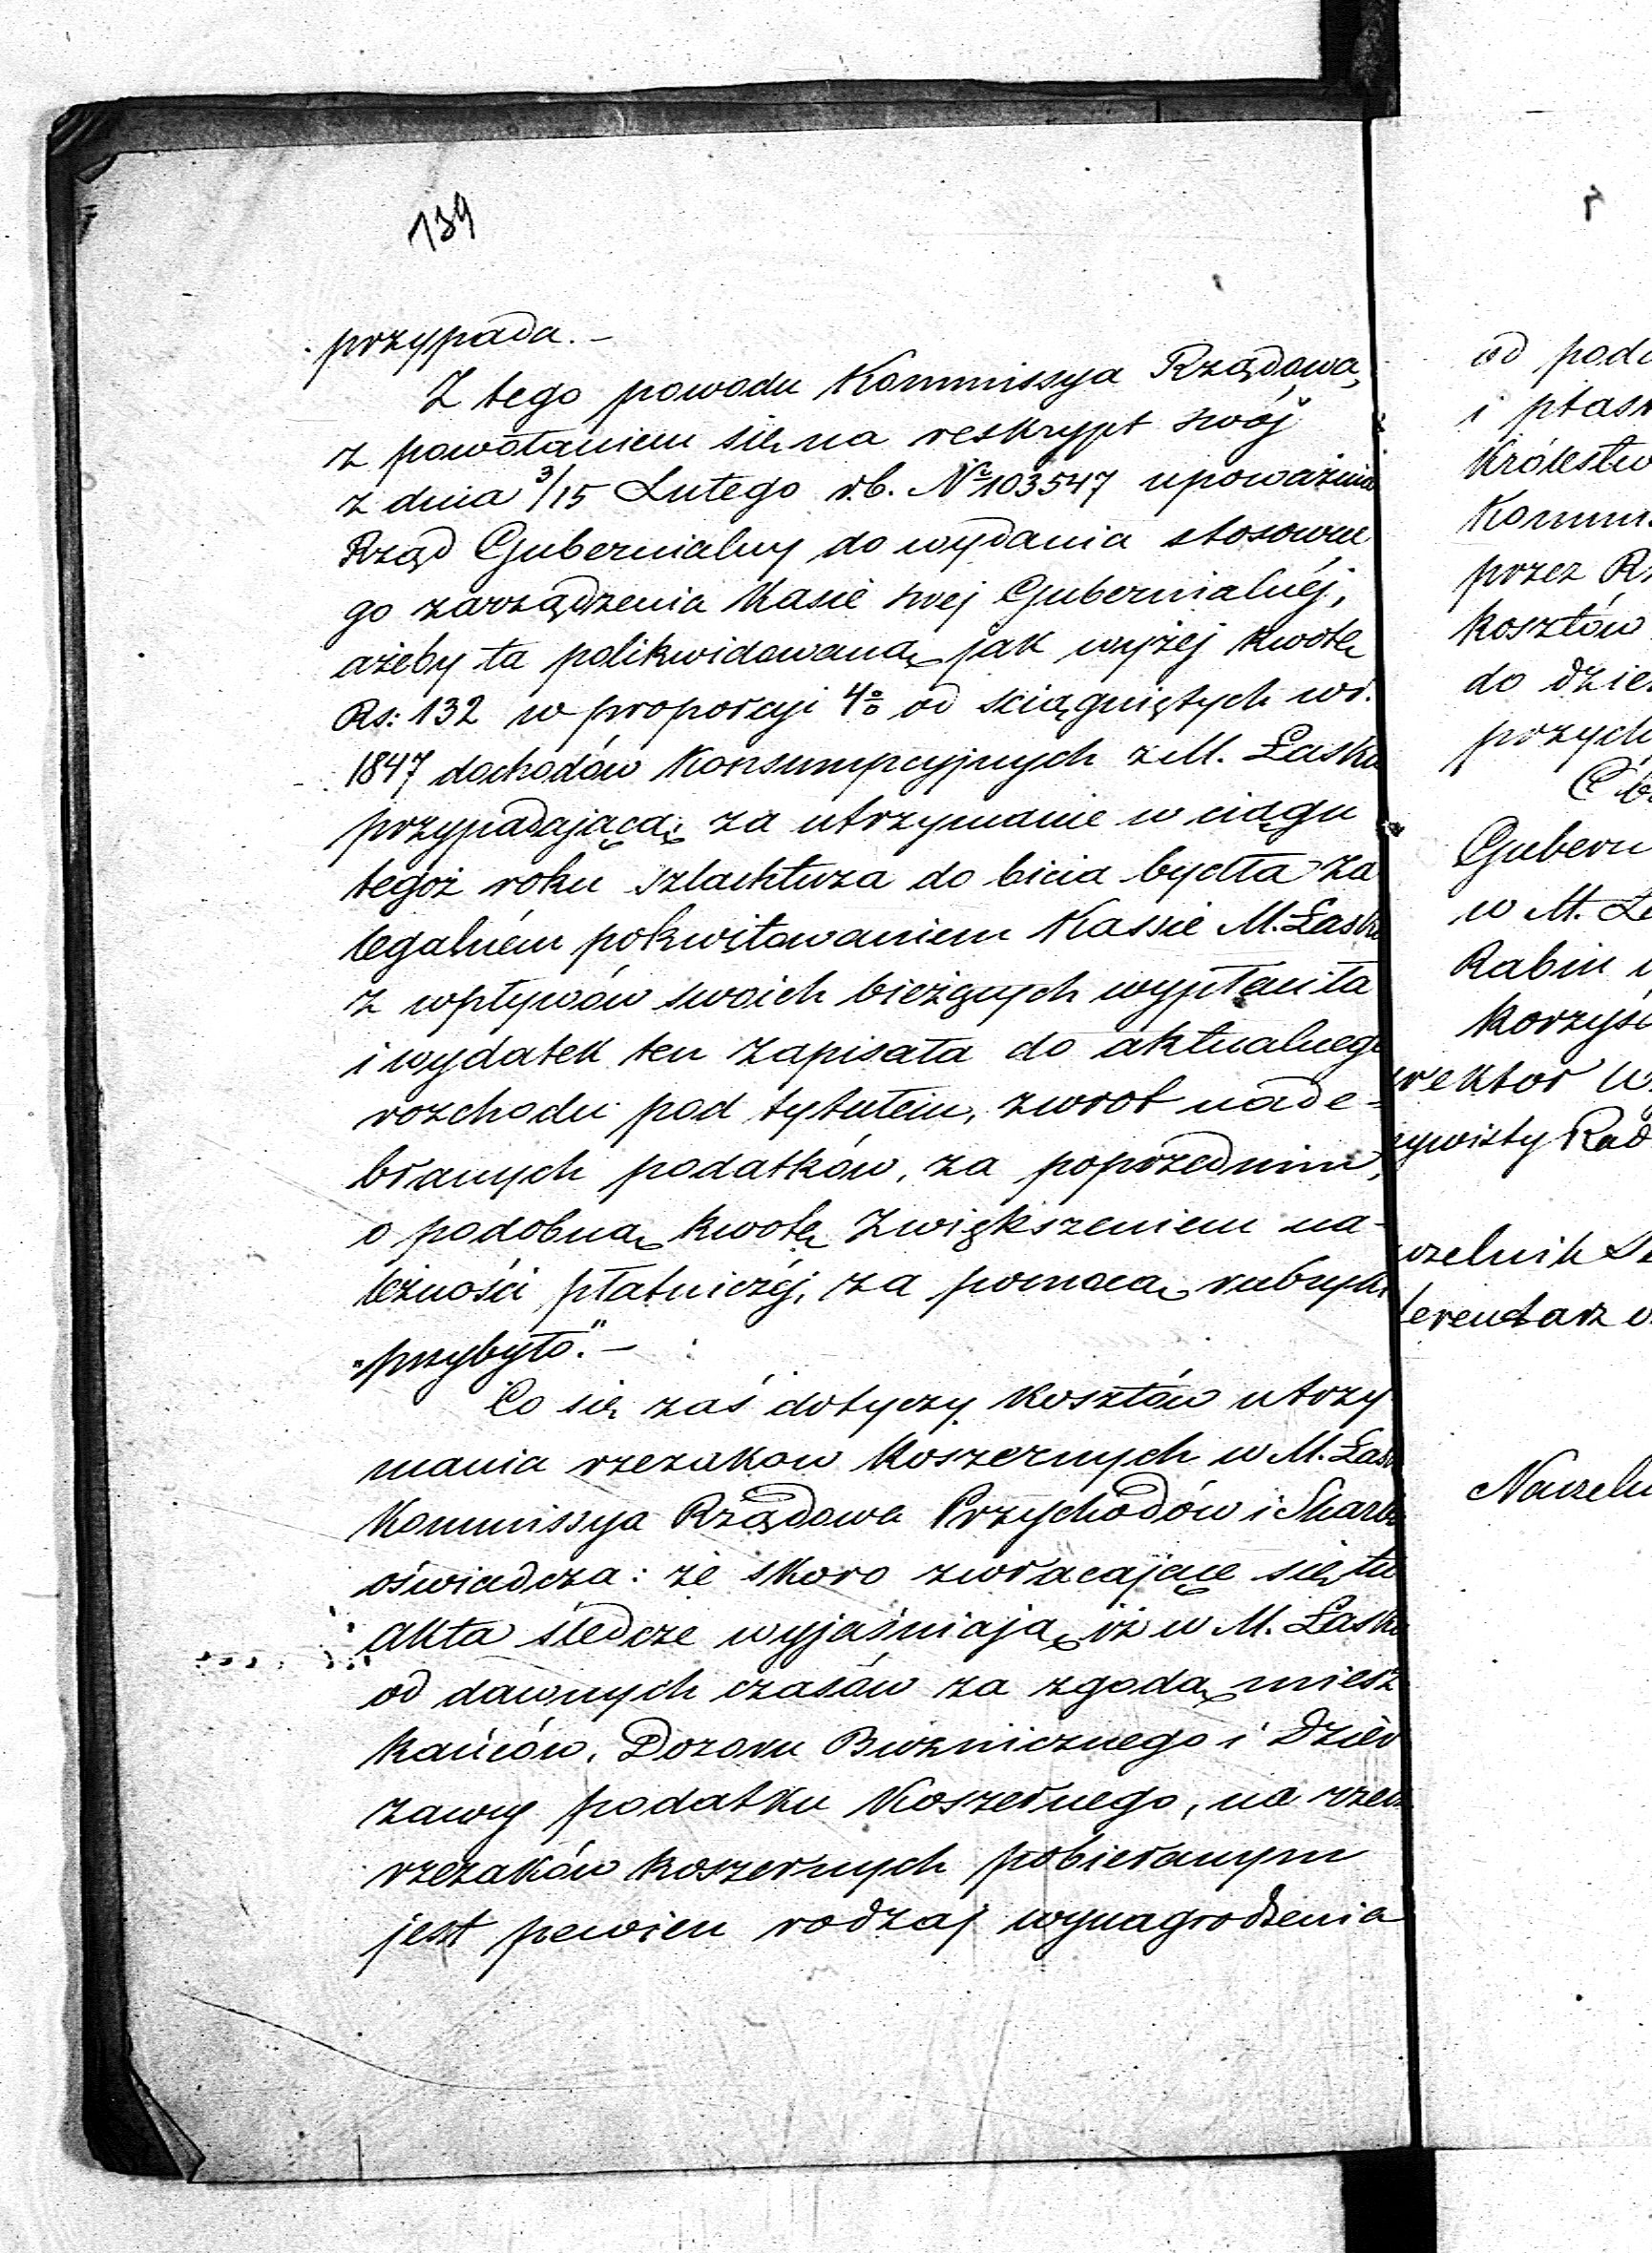 139
przypada.-
Z tego powodu Kommissya Rządowa,
z powołaniem się na reskrypt swój
z dnia 3/15 Lutego r.b. № 103547 upoważnia
Rząd Gubernialny do wydania stosowne
go zarządzenia Kasie swej Gubernialnéj,
ażeby ta polikwidowaną jak wyżej kwotę
Rs: 132 w proporcyi 4% od ściągniętych w r.
1847 dochodów Konsumpcyjnych z M. Łaska
przypadającą za utrzymanie w ciągu
tegoż roku szlachtuza do bicia bydła za
legalném pokwitowaniem Kassie M. Łaska
z wpływów swoich bieżących wypłaciła
i wydatek ten zapisała do aktualnego
rozchodu pod tytułem, zwrot nade-
branych podatków, za poprzednim,
o podobną kwotę zwiększeniem na-
leżności płatniczéj, za pomocą rubryki
"przybyło".-
Co się zaś dotyczy kosztów utrzy
mania rzezakow Koszernych w M. Łask
Kommissya Rządowa Przychodów i Skarbu
oświadcza: że skoro zwracające się tu
akta śledcze wyjaśniają, iż w M. Łasku
od dawnych czasów za zgodą miesz
kańców, Dozoru Bużniczнego i Dzier
żawcy podatku Koszernego, na rzecz
rzezaków koszernych pobieranym
jest pewien rodzaj wynagrodzenia
od
i
przez
kosztów
do
w M.
Rabin